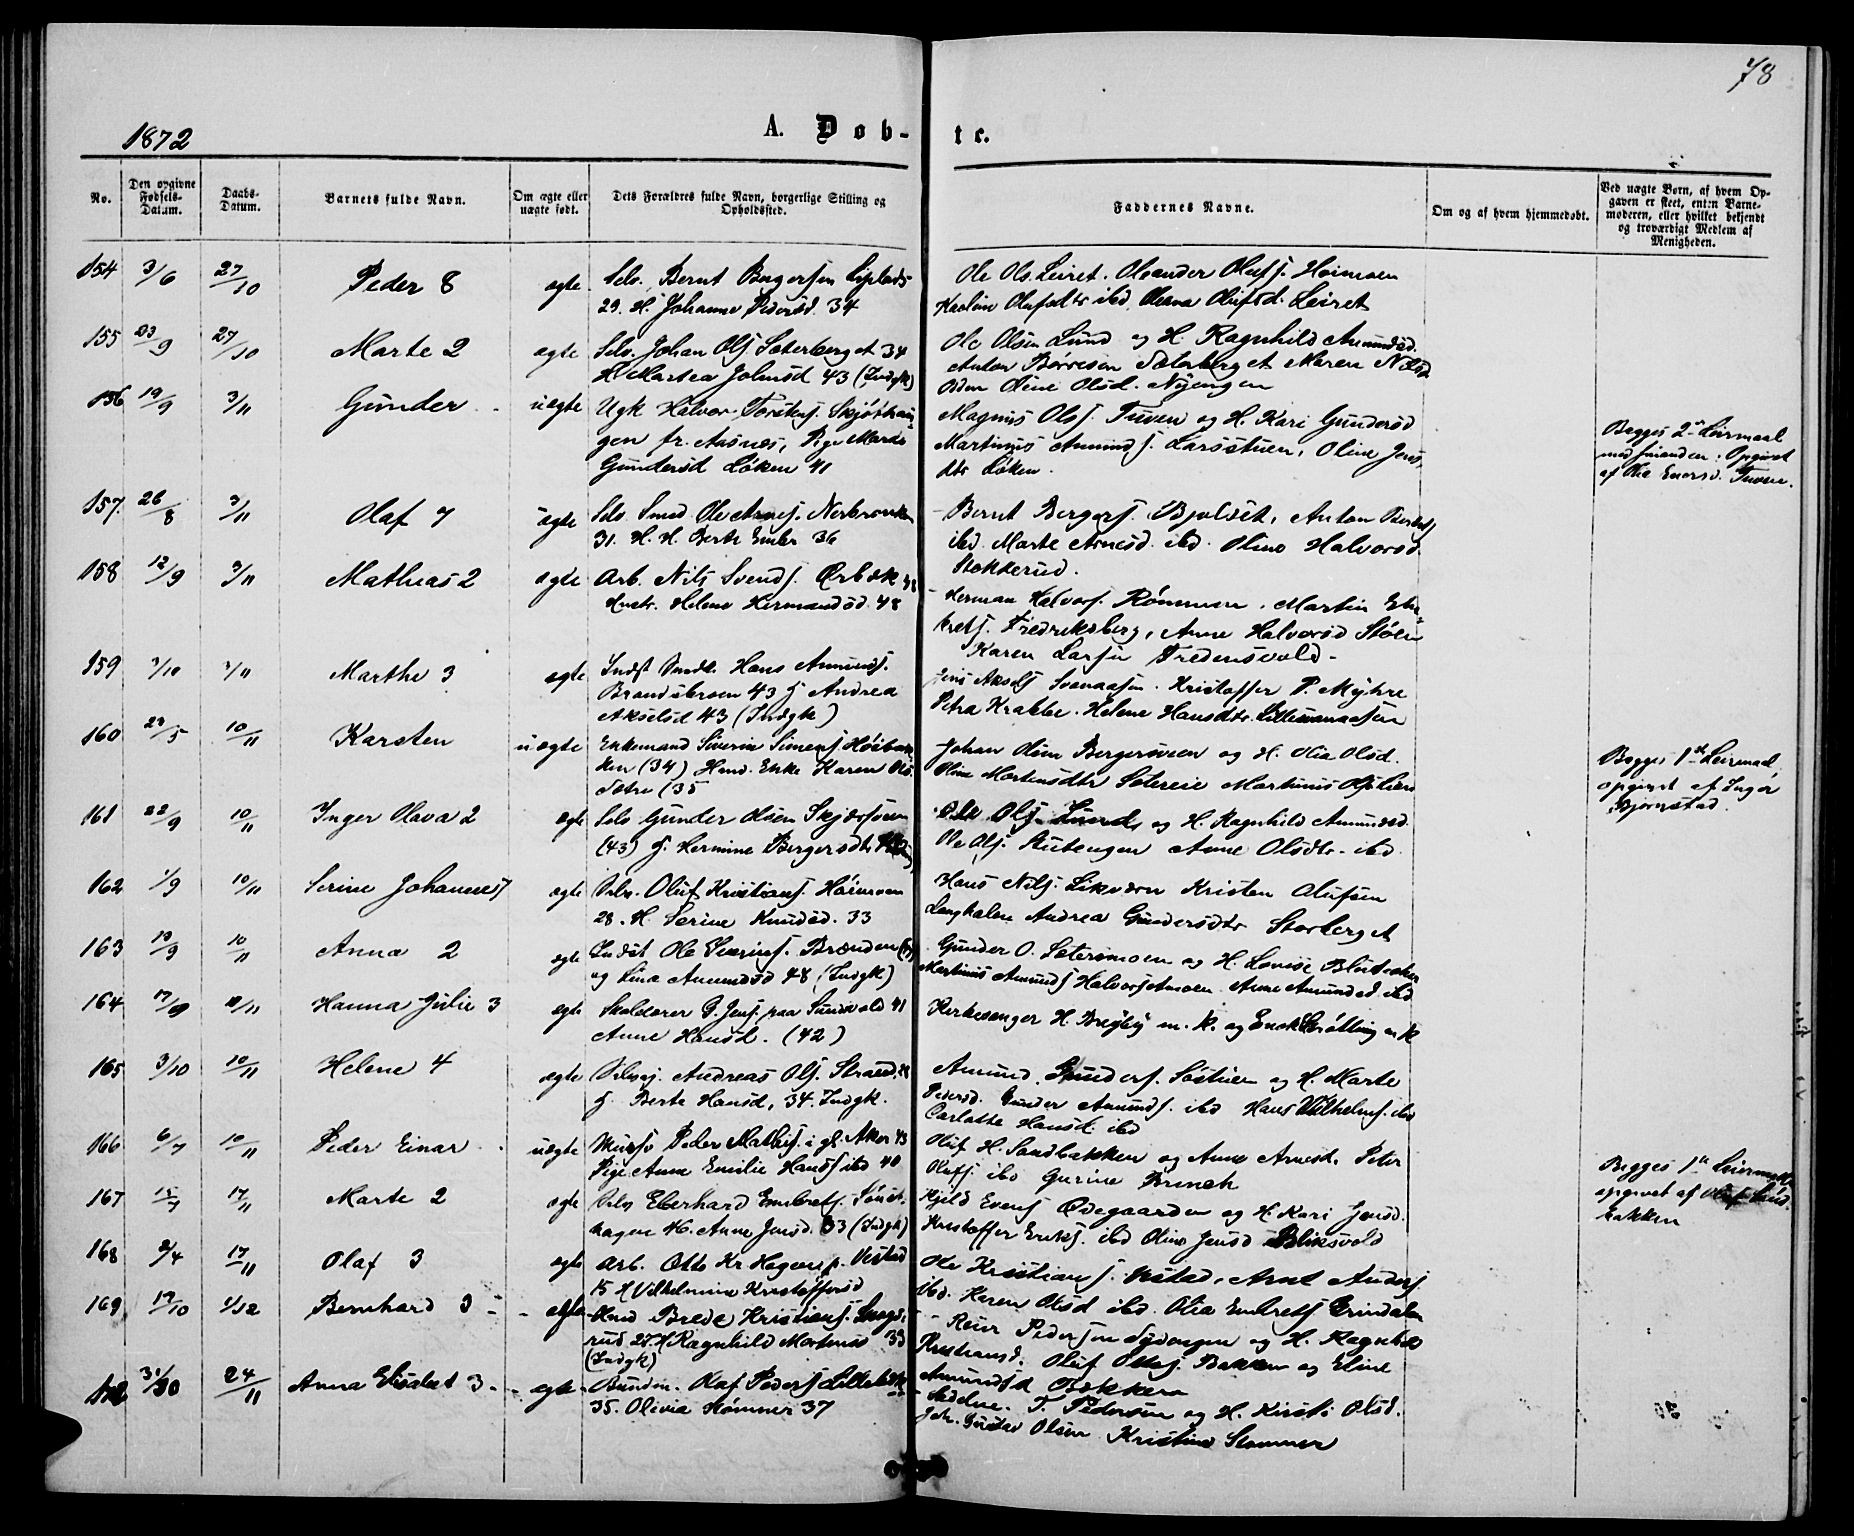 78
1872
A. Døb-
te.
No.
Den opgivne Fødsels-Datum.
Daabs-Datum.
Barnets fulde Navn.
Om ægte eller uægte født.
Dets Forældres fulde Navn, borgerlige Stilling og Opholdssted.
Faddernes Navne.
Om og af hvem hjemmedøbt.
Ved uægte Børn, af hvem Opgaven er skeet, enten Barnemoderen, eller hvilket bekjendt og troværdigt Medlem af Menigheden.
154 3/6 27/10 Peder 8 ægte Selv. Bernt Bergersen
29. H. Johanne Pedersd. 34
Ole Ols. Leiret. Oleander Olufs. Heimoen
Karoline Olufsdtr ibd Olufsd. Leiret
155 23/9 27/10 Marte 2 ægte Selv. Johan Olsj Sæterberget 34
H Martea Johnsd 43 (Indgk)
Ole Olsen Lund og H. Ragnhild Amundsd.
Anton Børresen Sæterberget Maren
Oline Olsd. Nyengen
156 19/9 3/11 Gunder uægte Ugk Halvor Torstens. Skjøthaugen
fr. Aasnæs, Pige Marte
Gundersd Løken 41
Magnus Olsj. Tuven og H. Kari Gundersd
Martinus Amundsj. Larsstuen, Oline Jens
dtr Løken.
Begges 2det Leirmaal
med hinanden. Opgivet
af Olia Enersd. Tuven.
157 26/8 3/11 Olaf 7 ægte Selv Smed Ole Arnes.
31. H. H. Berte Embr 36
Bernt Bergersj. Bjølset, Anton
ibd. Marte Arnesd. ibd. Oline Halvorsd.
Stokkerud.
158 12/9 3/11 Mathias 2 ægte Arb. Nils Svends. Ørbæk 48
Hustr. Helene Hermandsd. 48
Herman Halvors. Rømmen. Martin Embretsj.
Fredriksberg, Anne Halvorsd Støen
Karen Larsen Fredensvold
159 1/10 3/11 Marthe 3 ægte Indst Hans Amundsj.
43 H Andrea
Akselsd 43 (Indgk)
Jens Akselsj Svenaasen. Kristoffer P. Myhre
Petra Krabbe. Helene Hansdtr. Lillesvenaasen
160 29/5 10/11 Karsten uægte Enkemand Siverin Simensj Høibakken
(34) Enke Karen Ols.
Sætre (35
Johan Olsen Bergersveen og H. Olia Olsd.
Oline Mortensdtr Sætereie Martinus
Begges 1ste Leirmaal
opgivet af Inger
Bjørnstad.
161 22/9 10/11 Inger Olava 2 ægte Selv Gunder Olsen Skjærsveen
(43) H. Hermine Bergersdtr
Ole Olsj. Lund og H. Ragnhild Amundsd.
Ole Olsj. Stutengen Anne Olsdtr. ibd.
162 1/9 10/11 Serine Johannes 7 ægte Selv. Oluf Kristiansj. Heimoen
28. H. Serine Knudsd. 33
Hans Nils. Likværn Kristen Olufsen
Langhalen Andrea Gundersdtr Storberget
163 19/9 10/11 Anna 2 ægte Indst Ole Siverinsj. Brænden
og Lina Amundsd 48 (Indgk)
Gunder O. Sætersmoen og H. Lovise
Martinus Amundsj Halvorsjamoen. Anne Amundsd ibd
164 17/9 10/11 Hanna Julie 3 ægte Skolelærer G. Jens. paa Sundvold 41
Anne Hansd. (42)
Kirkesanger H. Brejby m. K. og Enok Skrøtting m. K
165 3/10 10/11 Helene 4 ægte Selvej. Andreas Olsj. Strand
H. Berte Hansd, 34. Indgk.
Amund Gundersj. Søstuen og H. Marte
Pedersd. Gunder Amundsj. ibd Hans Vilhelmsj. ibd
Carlotte Hansd. ibd
166 6/7 10/11 Peder Einar uægte Peder Mathisj. i gl. Aker 43
Pige Anne Emilie Hansj ibd 40
Oluf H. Sandbakken og Anne Arnesd. Peter
Olufsj ibd Gurine Brinch
Begges 1ste Leirmaal
opgivet af Oluf Sand-
bakken
167 15/7 17/11 Marte 2 ægte Selv Eberhard Embretsj.
hagen 46. Anne Jensd. 33 (Indgk)
Kjeld Evensj Ødegaarden og H. Kari Jensd.
Kristoffer Eriksj. ibd Oline Jensd Bliksvold
168 2/4 17/11 Olaf 3 ægte Arb. Otto Kr Vestad
15 H Vilhelmine Kristoffersd
Ole Kristiansj. Vestad, Arnt Andersj
ibd. Karen Olsd ibd. Olia Embretsj Grindalen
169 19/10 1/12 Bernhard 3 ægte Brede Kristiansj.
rud 27 H Ragnhild Mortensd 33
(Indgk)
Reier Pedersen Nyvangen og H. Ragnhild
Kristiansd. Oluf Ottesj. Bakken og Eline
Amundsd Bakken
24/11 Anna Elisabet 3 ægte Bunden. Olaf Pedersj Lillebæk
35. Olivia Stømner 37
T. Pedersen og H. Kirsti Olsd.
Joh. Gustav Olsen Kristine Stømner